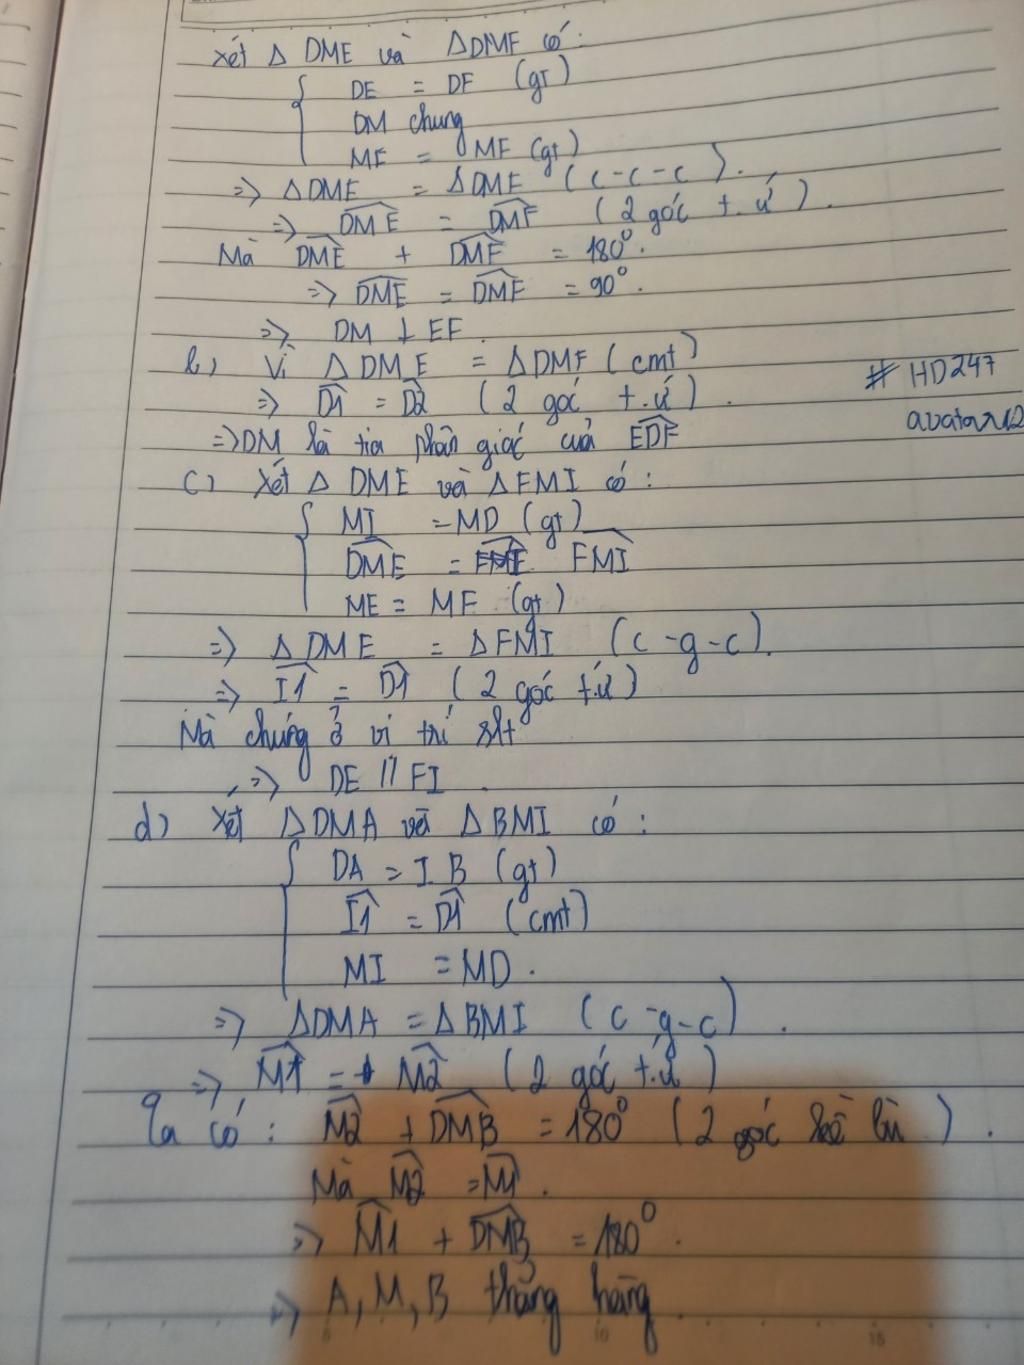 Xét Δ DME và ΔDMF có:
DE = DF (gt)
DM chung
ME = MF (gt)
=> ΔDME = ΔDMF (c-c-c).
=> \widehat{DME} = \widehat{DMF} (2 góc t.ứ).
Mà \widehat{DME} + \widehat{DMF} = 180°.
=> \widehat{DME} = \widehat{DMF} = 90°.
=> DM ⊥ EF.
b, Vì ΔDME = ΔDMF (cmt)
=> \widehat{D1} = \widehat{D2} (2 góc t.ứ).
# HD247
avatar12
=> DM là tia phân giác của \widehat{EDF}
c) Xét Δ DME và ΔFMI có:
MI = MD (gt)
\widehat{DME} = \widehat{FMI}
ME = MF (gt)
=> ΔDME = ΔFMI (c-g-c).
=> \widehat{I1} = \widehat{D1} (2 góc t.ứ)
Mà chúng ở vị trí slt
=> DE // FI.
d) Xét ΔDMA và ΔBMI có:
DA = IB (gt)
\widehat{I1} = \widehat{D1} (cmt)
MI = MD.
=> ΔDMA = ΔBMI (c-g-c).
=> \widehat{M1} = \widehat{M2} (2 góc t.ứ)
Ta có: \widehat{M2} + \widehat{DMB} = 180° (2 góc kề bù).
Mà \widehat{M2} = \widehat{M1}.
=> \widehat{M1} + \widehat{DMB} = 180°.
=> A, M, B thẳng hàng.
5 10 15